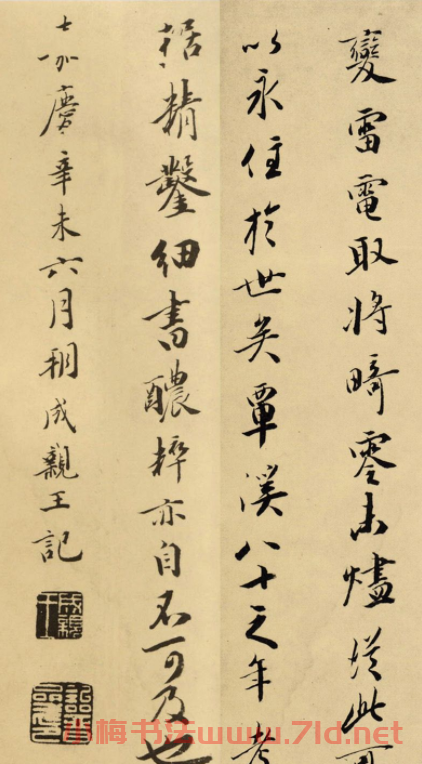 變雷電取將畸零未燼從此可
以永住於世矣覃溪八十之年考
据精鑿細書醲粹亦自不可及也
嘉慶辛未六月朔成親王記
成親王
小梅书法www.7ld.net